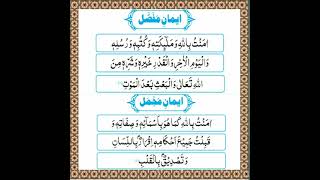 ایمانِ مفصّل
اٰمَنْتُ بِاللّٰهِ وَمَلٰٓئِكَتِهٖ وَكُتُبِهٖ وَرُسُلِهٖ
وَالْيَوْمِ الْاٰخِرِ وَالْقَدْرِ خَيْرِهٖ وَشَرِّهٖ مِنَ
اللّٰهِ تَعَالٰى وَالْبَعْثِ بَعْدَ الْمَوْتِ
ایمانِ مجمل
اٰمَنْتُ بِاللّٰهِ كَمَا هُوَ بِاَسْمَآئِهٖ وَصِفَاتِهٖ وَ
قَبِلْتُ جَمِيْعَ اَحْكَامِهٖ اِقْرَارٌۢ بِاللِّسَانِ
وَتَصْدِيْقٌۢ بِالْقَلْبِ